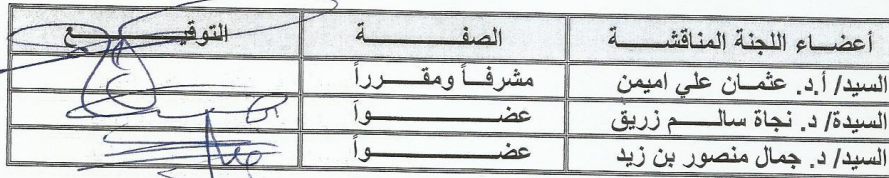 أعضاء اللجنة المناقشة الصفة التوقيع
السيد/ أ.د. عثمان علي اميمن مشرفاً ومقرراً
السيدة/ د. نجاة سالم زريق عضواً
السيد/ د. جمال منصور بن زيد عضواً